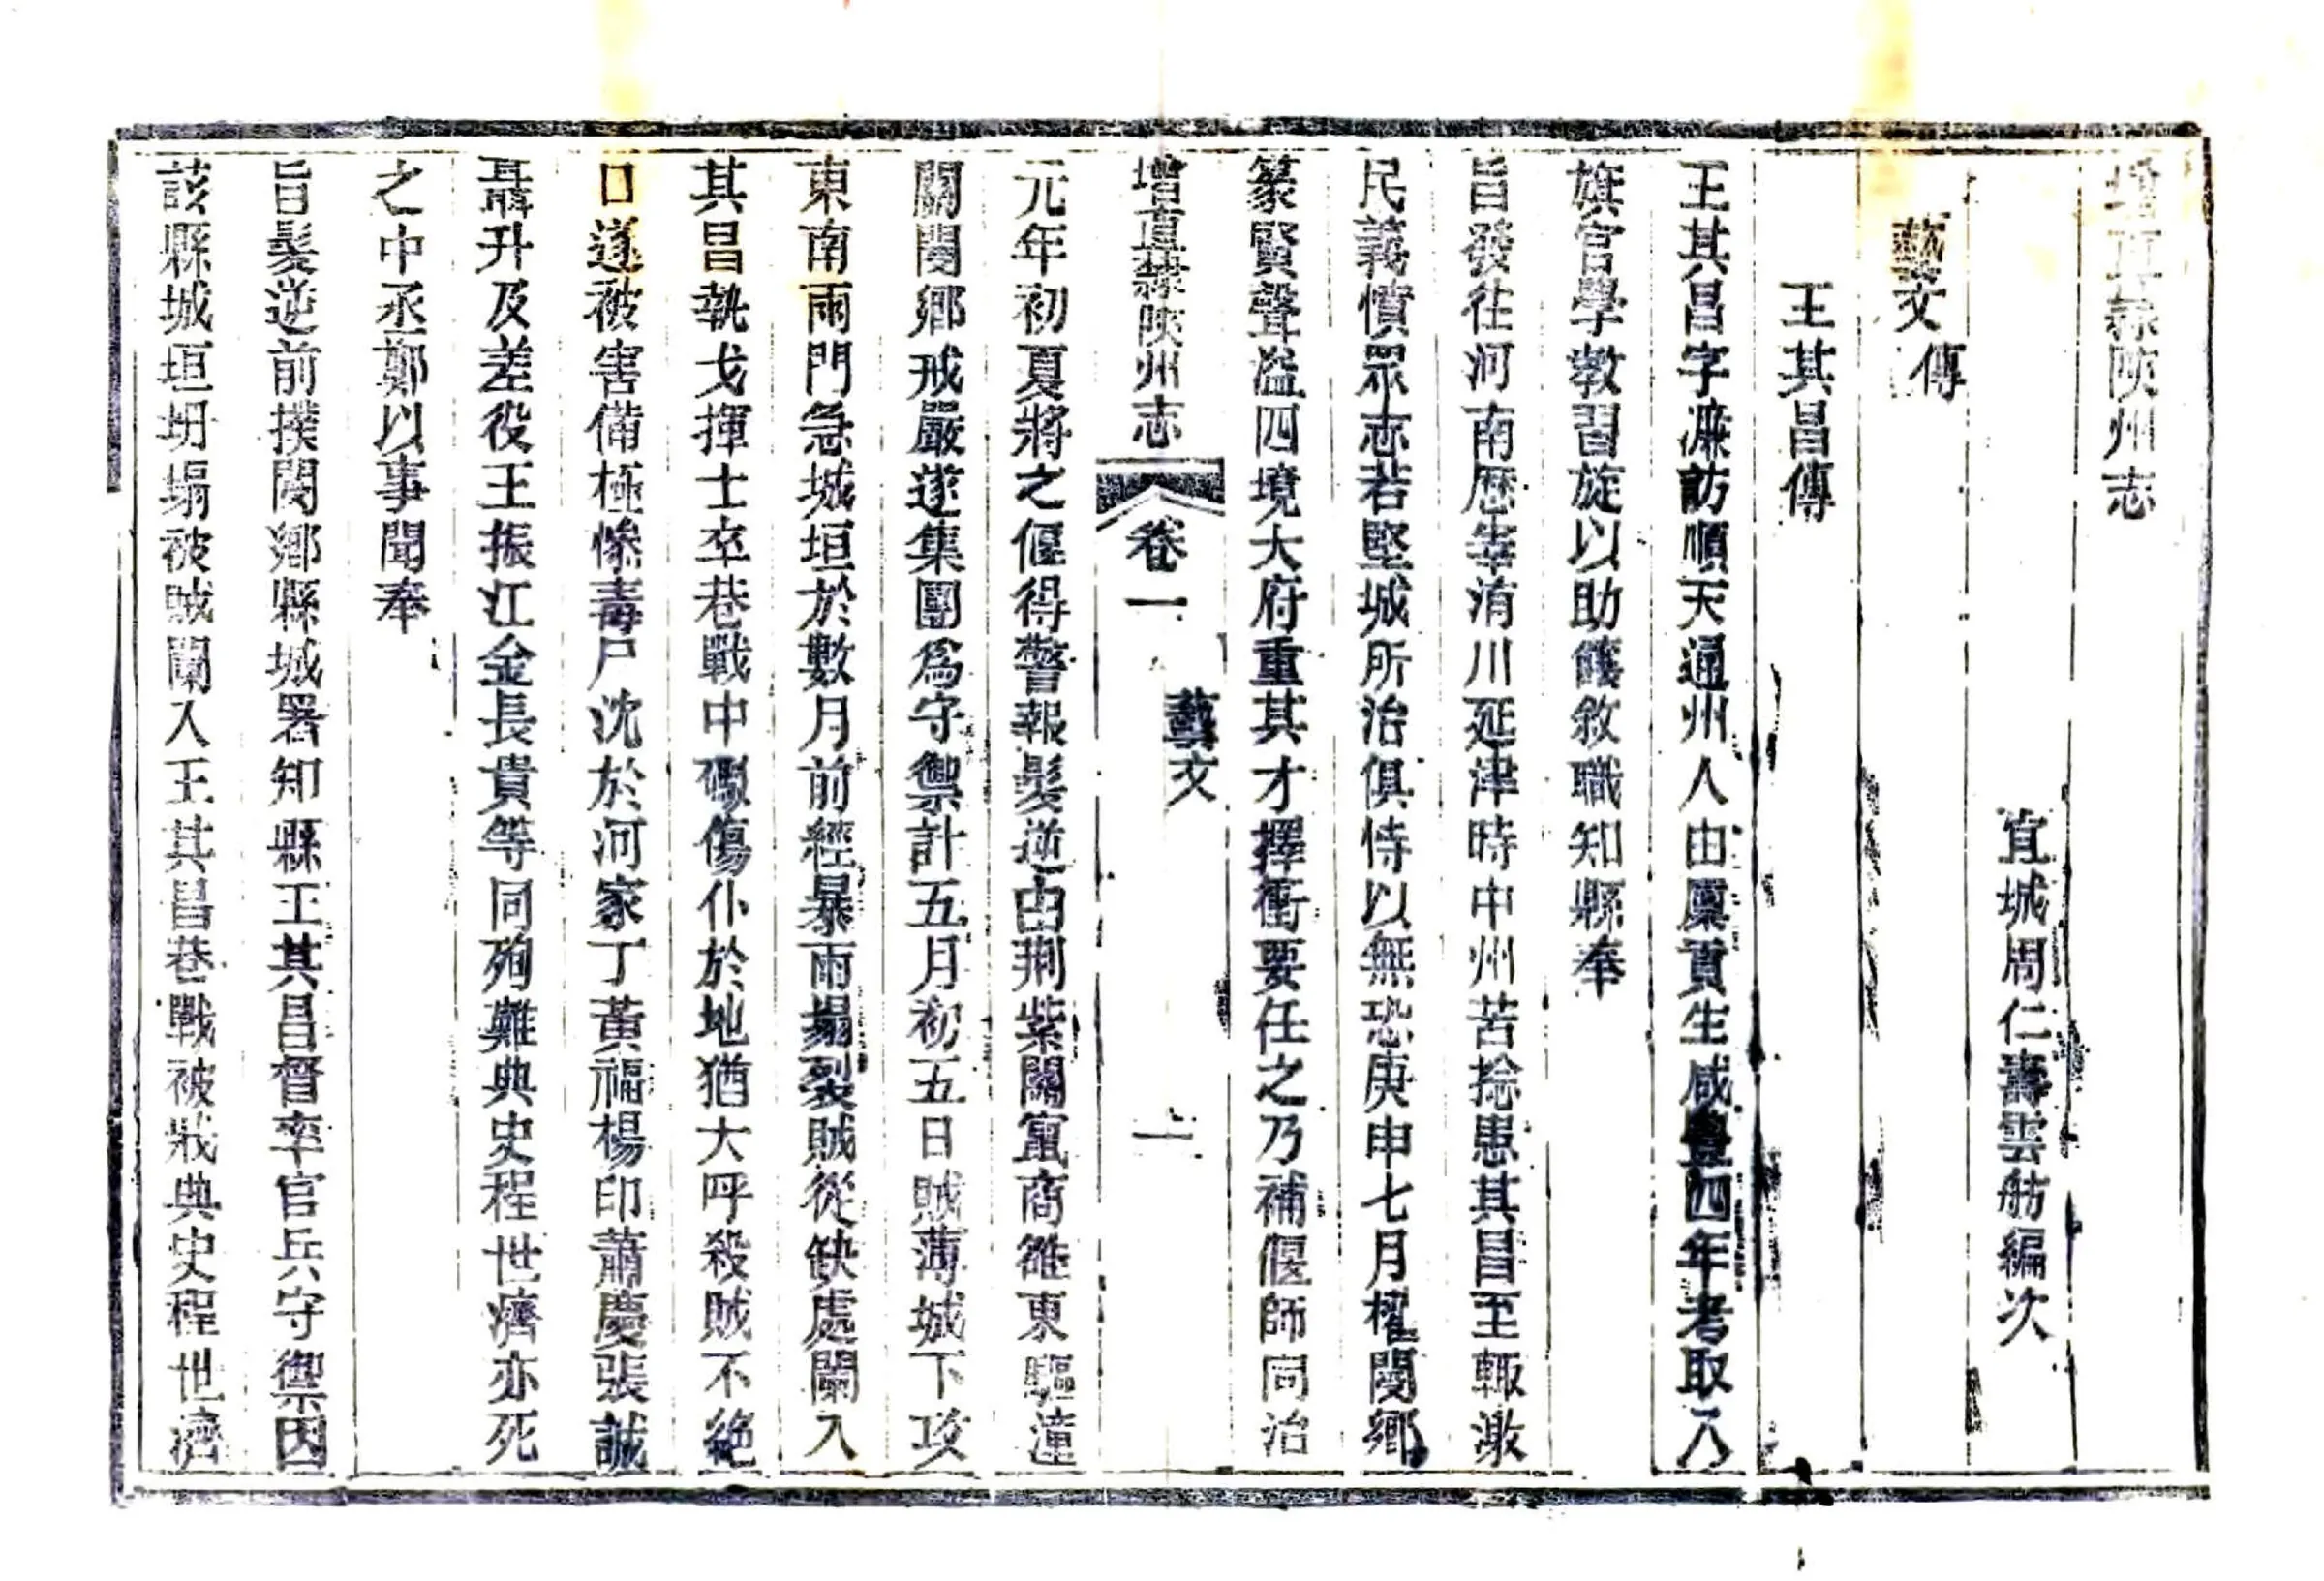 增直隸陜州志
宜城周仁壽雲舫編次
藝文 傳
王其昌傳
王其昌字濂訪順天通州人由廩貢生咸豐四年考取八
旗官學教習旋以助餉敘職知縣奉
旨發往河南歷宰洧川延津時中州苦捻患其昌至輙激
民義憤眾志若堅城所治俱恃以無恐庚申七月權閿鄉
篆賢聲溢四境大府重其才擇衝要任之乃補偃師同治
增直隸陜州志 卷一 藝文 一
元年初夏將之偃得警報髮逆由荊紫關竄商雒東驅潼
關閿鄉戒嚴遂集團爲守禦計五月初五日賊薄城下攻
東南兩門急城垣於數月前經暴雨塌裂賊從缺處闌入
其昌執戈揮士卒巷戰中礮傷仆於地猶大呼殺賊不絕
口遂被害備極慘毒尸沈於河家丁黃福楊印蕭慶張誠
聶升及差役王振江金長貴等同殉難典史程世濟亦死
之中丞鄭以事聞奉
旨髮逆前撲閿鄉縣城署知縣王其昌督率官兵守禦因
該縣城垣坍塌被賊闌入王其昌巷戰被戕典史程世濟